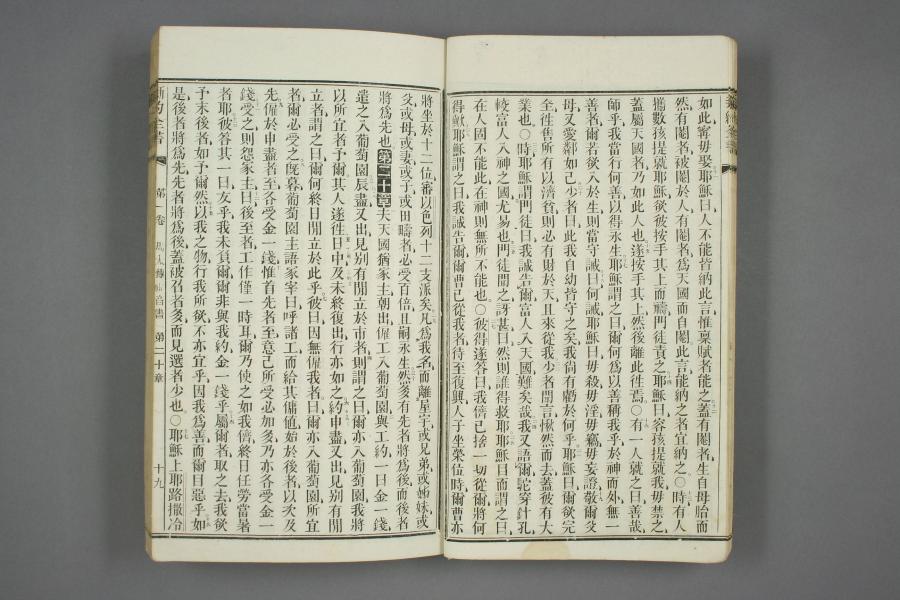 如此寧毋娶耶穌曰人不能皆納此言惟稟賦者能之蓋有閹者生自母胎而
然有閹者被閹於人有閹者爲天國而自閹此言能納之者宜納之○時有人
攜數孩提就耶穌欲被按手其上而禱門徒責之耶穌曰容孩提就我毋禁之
蓋屬天國者乃如此人也遂按手其上然後離此往焉○有一人就之曰善哉
師乎我當行何善以得永生耶穌謂之曰爾何爲以善稱我乎於神而外無一
善者爾若欲入於生則當守誡曰何誡耶穌曰毋殺毋淫毋竊毋妄證敬爾父
母又愛鄰如己少者曰此我自幼皆守之矣我尙有虧於何乎耶穌曰爾欲完
全往售所有以濟貧則必有財於天且來從我少者聞言愀然而去蓋彼有大
業也○時耶穌謂門徒曰我誠告爾富人入天國難矣哉我又語爾駝穿針孔
較富人入神之國尤易也門徒聞之訝甚曰然則誰得救耶耶穌目而謂之曰
在人固不能此在神則無所不能也○彼得遂答曰我儕已捨一切從爾將何
得歟耶穌謂之曰我誠告爾爾曹已從我者待至復興人子坐榮位時爾曹亦
將坐於十二位審以色列十二支派矣凡爲我名而離屋宇或兄弟或姊妹或
父或母或妻或子或田疇者必受百倍且嗣永生然多有先者將爲後而後者
將爲先也第二十章夫天國猶家主朝出僱工入葡萄園與工約一日金一錢
遣之入葡萄園辰盡又出見別有閒立於市者則謂之曰爾亦入葡萄園我將
以所宜者予爾其人遂往日中及未終復出行亦如之約申盡又出見别有閒
立者謂之曰爾何終日閒立於此乎彼曰因無僱我者曰爾亦入葡萄園所宜
者爾必受之旣暮葡萄園主語家宰曰呼諸工而給其傭値始於後者以次及
先僱於申盡者至各受金一錢惟首先者至意己所受必加多乃亦各受金一
錢受之則怨家主曰後至者工作僅一時耳爾乃使之如我儕終日任勞當暑
者耶彼答其一曰友乎我未負爾爾非與我約金一錢乎屬爾者取之去我欲
予末後者如予爾然以我之物行我所欲不亦宜乎因我爲善而爾目惡乎如
是後者將爲先先者將爲後蓋被召者多而見選者少也○耶穌上耶路撒冷
新約全書 第一卷 馬太傳福音書 第二十章 十九